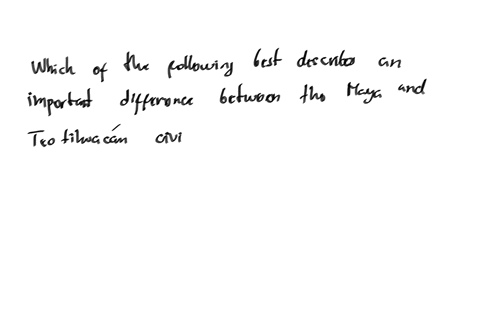 Which of the following best describes an
important difference between the Maya and
Teotihuacán civi